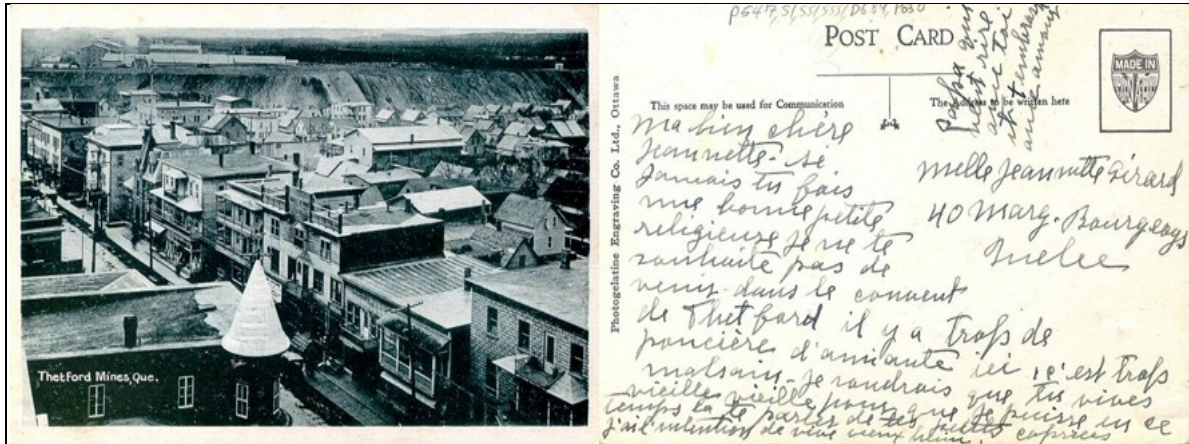 Thetford Mines, Que.
P547,S1/SS/SSS/D684,P630
POST CARD
MADE IN
Photogelatine Engraving Co. Ltd., Ottawa
This space may be used for Communication
The Address to be written here
Papa
veut rire
avec toi
et t'embrasse
Ma bien chère
Jeannette. Si
jamais tu fais
une bonne petite
religieuse je ne te
souhaite pas de
venir dans le couvent
de Thetford il y a trops de
poucière d'amiante ici, c'est trops
malsain. Je voudrais que tu vives
vieille vieille pour que je puisse en ce
temps là te parler de tes petits caprices
j'ai l'intention de vivre vieux
Melle Jeannette Girard
40 Marg. Bourgeoys